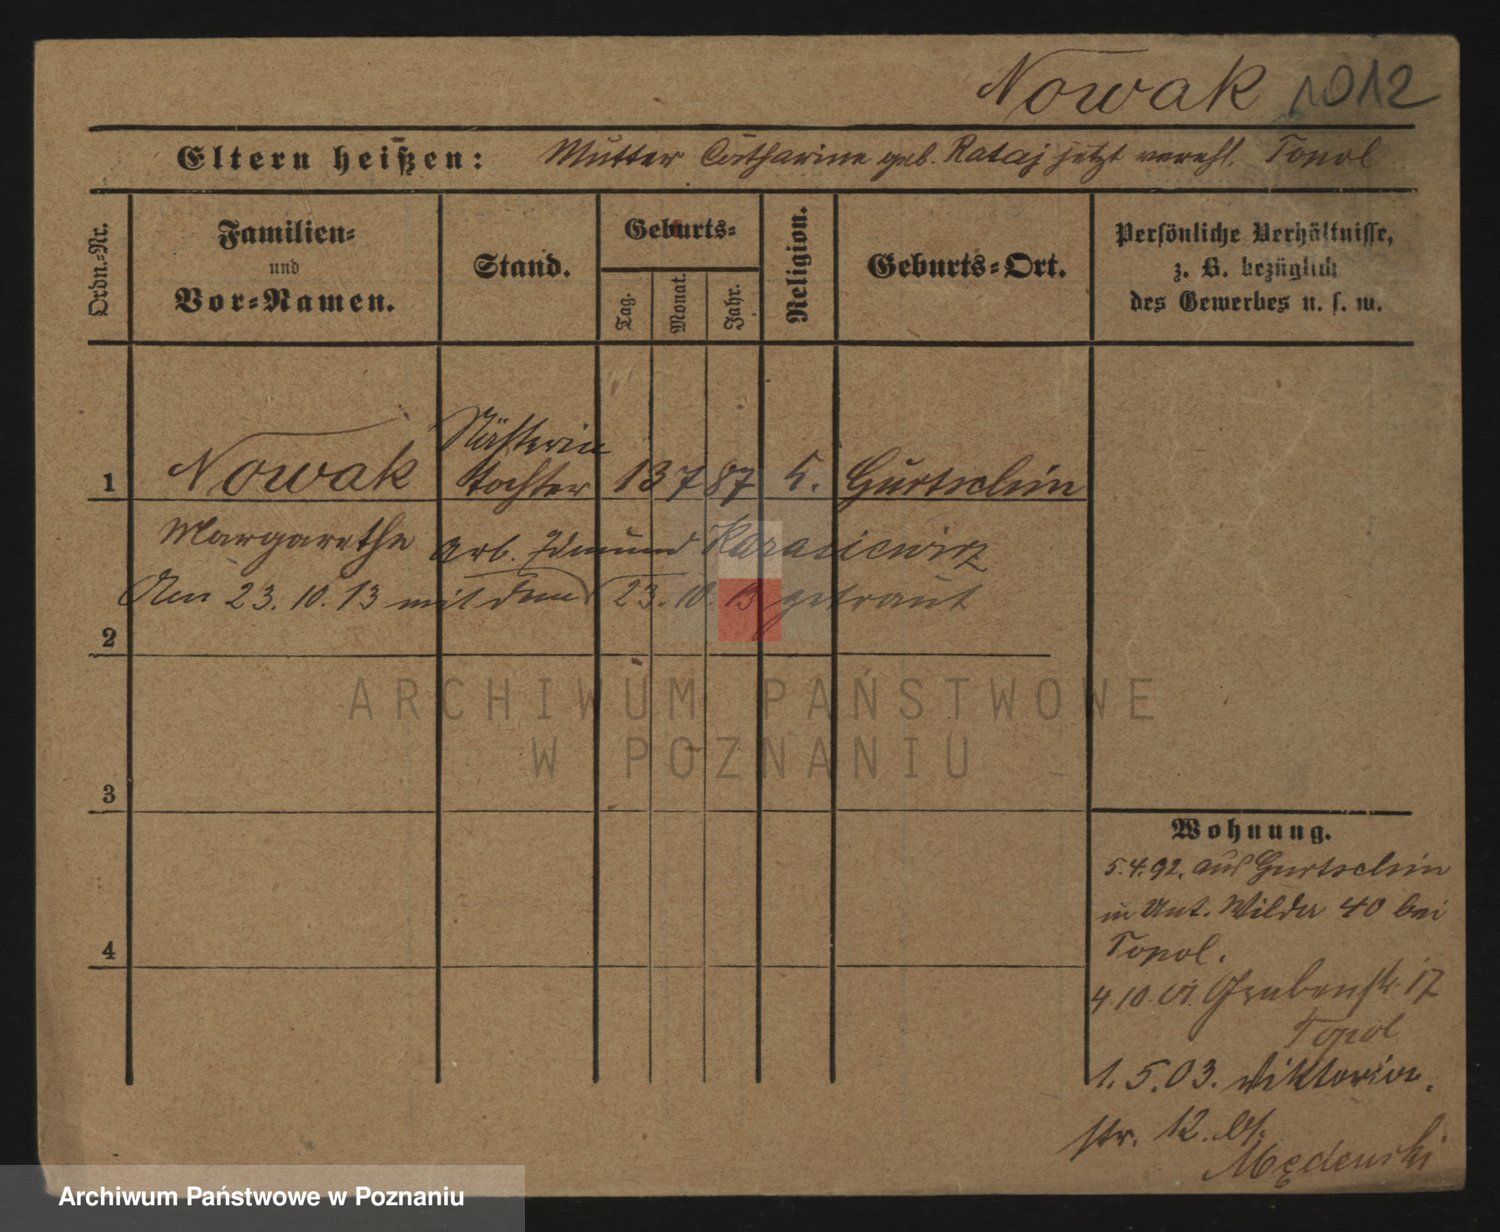 Nowak 1012
Eltern heißen: Mutter Catharine geb. Rataj jetzt verehl. Topol
Ordn.-Nr.
Familien- und Vor-Namen.
Stand.
Geburts-
Tag.
Monat.
Jahr.
Religion.
Geburts-Ort.
Persönliche Verhältnisse,
z. B. bezüglich
des Gewerbes u. s. w.
Näherin
1 Nowak tochter 13 7 87 k. Gurtschin
Margarethe Arb. Edmund Karasiewicz
Am 23. 10. 13 mit dem 23. 10. 13 getraut
2
3
4
Wohnung.
5.4.92. aus Gurtschin
in Unt. Wilda 40 bei
Topol.
4 10 01. Grabenstr. 17
Topol
1. 5. 03. Viktoria
str. 12.
Mędenski
ARCHIWUM PAŃSTWOWE
W POZNANIU
Archiwum Państwowe w Poznaniu